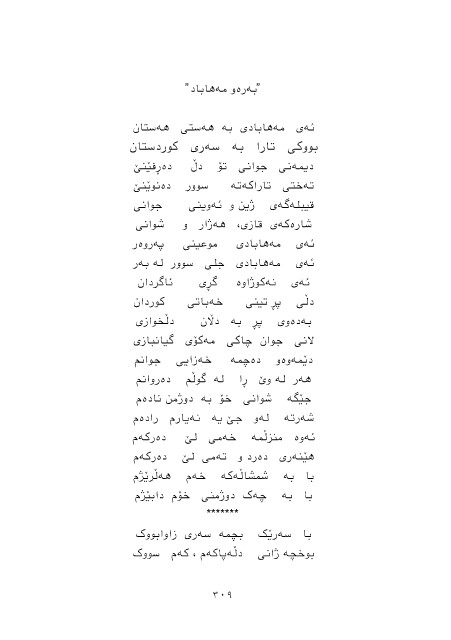 "بەرەو مەهاباد"
ئەی مەهابادی بە هەستی هەستان
بووکی تارا بە سەری کوردستان
دیمەنی جوانی تۆ دڵ دەرفێنێ
تەختی تاراکەتە سوور دەنوێنێ
قیبلەگەی ژین و ئەوینی جوانی
شارەکەی قازی، هەژار و شوانی
ئەی مەهابادی موعینی پەروەر
ئەی مەهابادی جلی سوور لە بەر
ئەی نەکوژاوە گڕی ئاگردان
دڵی پڕ تینی خەباتی کوردان
بەدەوی پڕ بە دڵان دڵخوازی
لانی جوان چاکی مەکۆی گیانبازی
دێمەوەو دەچمە خەزایی جوانم
هەر لە وێ ڕا لە گوڵم دەروانم
جێگە شوانی خۆ بە دوژمن نادەم
شەرتە لەو جێ یە نەیارم رادەم
ئەوە منزڵمە خەمی لێ دەرکەم
هێنەری دەرد و تەمی لێ دەرکەم
با بە شمشاڵەکە خەم هەڵرێژم
با بە چەک دوژمنی خۆم دابێژم
*******
با سەرێک بچمە سەری زاوابووک
بوخچە ژانی دڵەپاکەم ، کەم سووک
٣٠٩